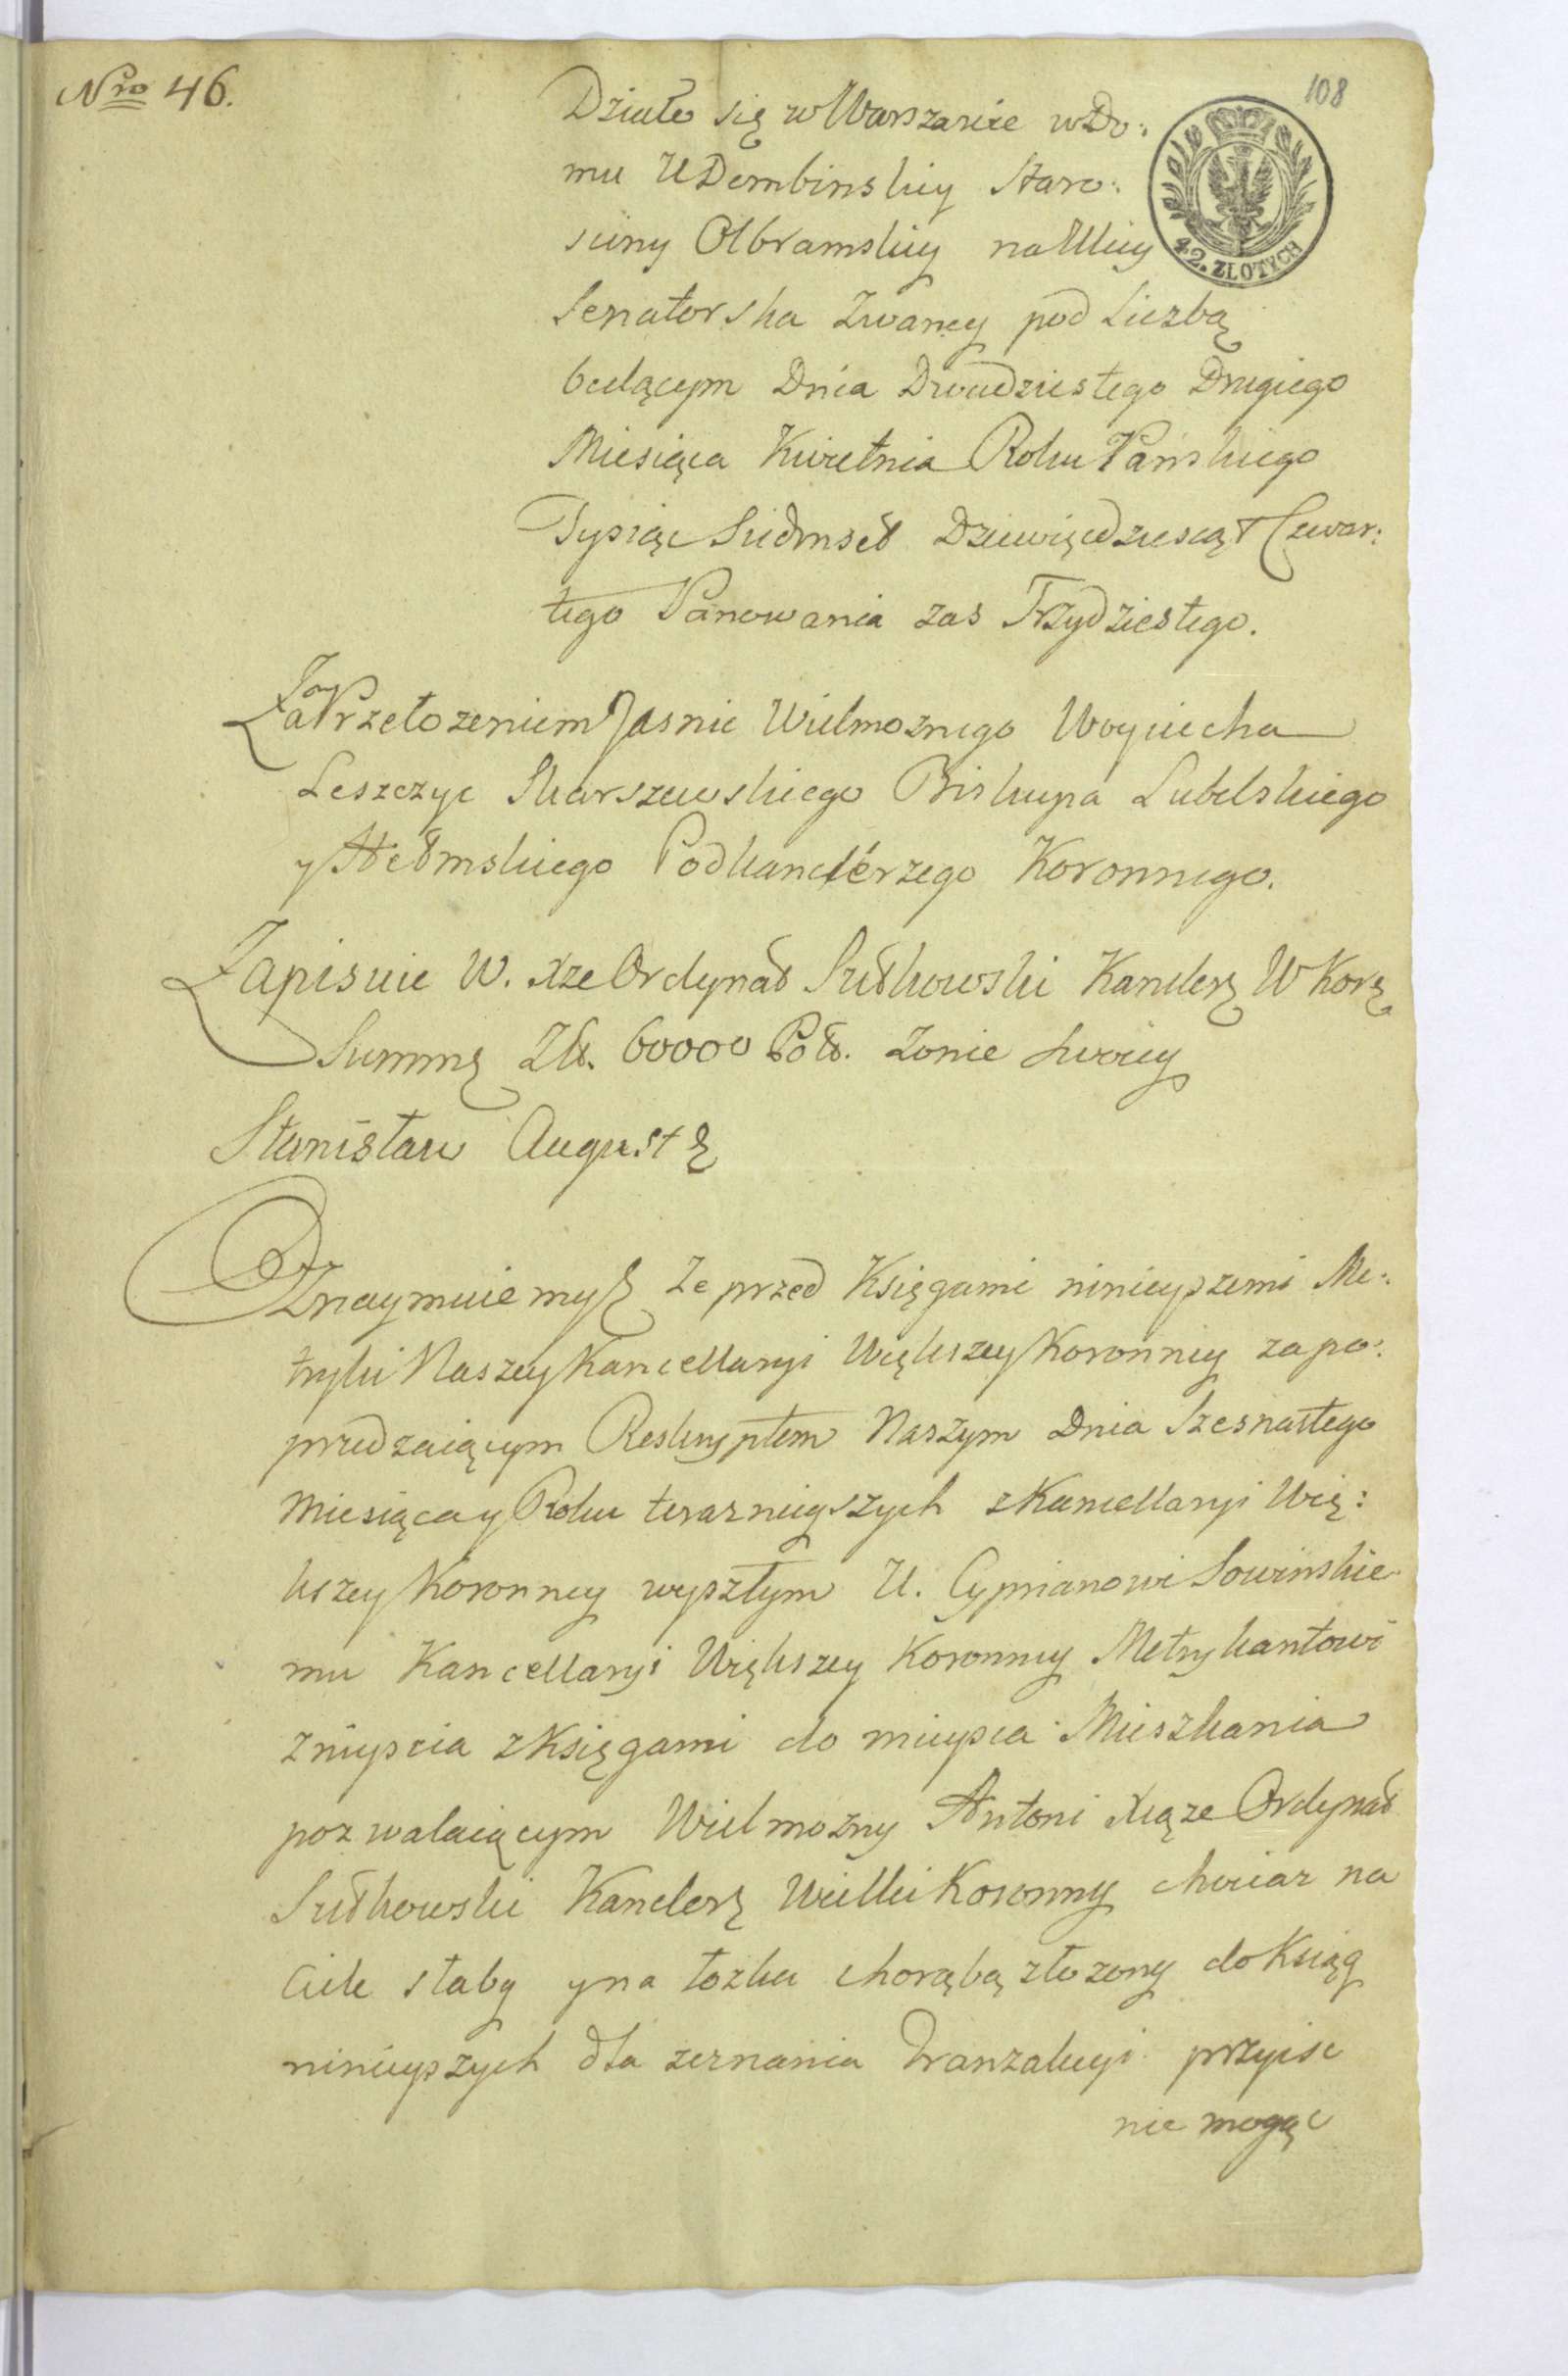 Nro 46.
108
Działo się w Warszawie w Do:
mu U Dembinskiy Staro:
sciny Olbramskiy na Ulicy
42. ZŁOTYCH
Senatorska Zwaney pod Liczbą
będącym Dnia Dwudziestego Drugiego
Miesiąca Kwietnia Roku Pańskiego
Tysiąc Siedmset Dziewięćdziesiąt Czwar:
tego Panowania zas Trzydziestego.
Za Przełozeniem Jasnie Wielmoznego Woyciecha
Leszczyc Skarszewskiego Biskupa Lubelskiego
y Hełmskiego Podkanclérzego Koronnego.
Zapisuie W. Xze Ordynat Sułkowski Kanclerz W Kor
Summę Zł. 60000 Pol. Zonie Swoiey
Stanisław August
Oznaymuiemy Ze przed Księgami ninieyszemi Me:
tryki Naszey Kancellaryi Większey Koronney za po:
przedzaiącym Reskryptem Naszym Dnia Szesnastego
Miesiąca y Roku teraznieyszych z Kancellaryi Wię:
kszey Koronney wyszłym U. Cypryanowi Sowinskie
mu Kancellaryi Większey Koronney Metrykantowi
Znieyscia z Księgami do mieysca Mieszkania
pozwalaiącym Wielmozny Antoni Xiąze Ordynat
Sułkowski Kanclerz Wielki Koronny chociaz na
Ciele słaby y na łozku chorąbą złozony do Ksiąg
ninieyszych dla zeznania Tranzakcyi przyisc
nie mogąc